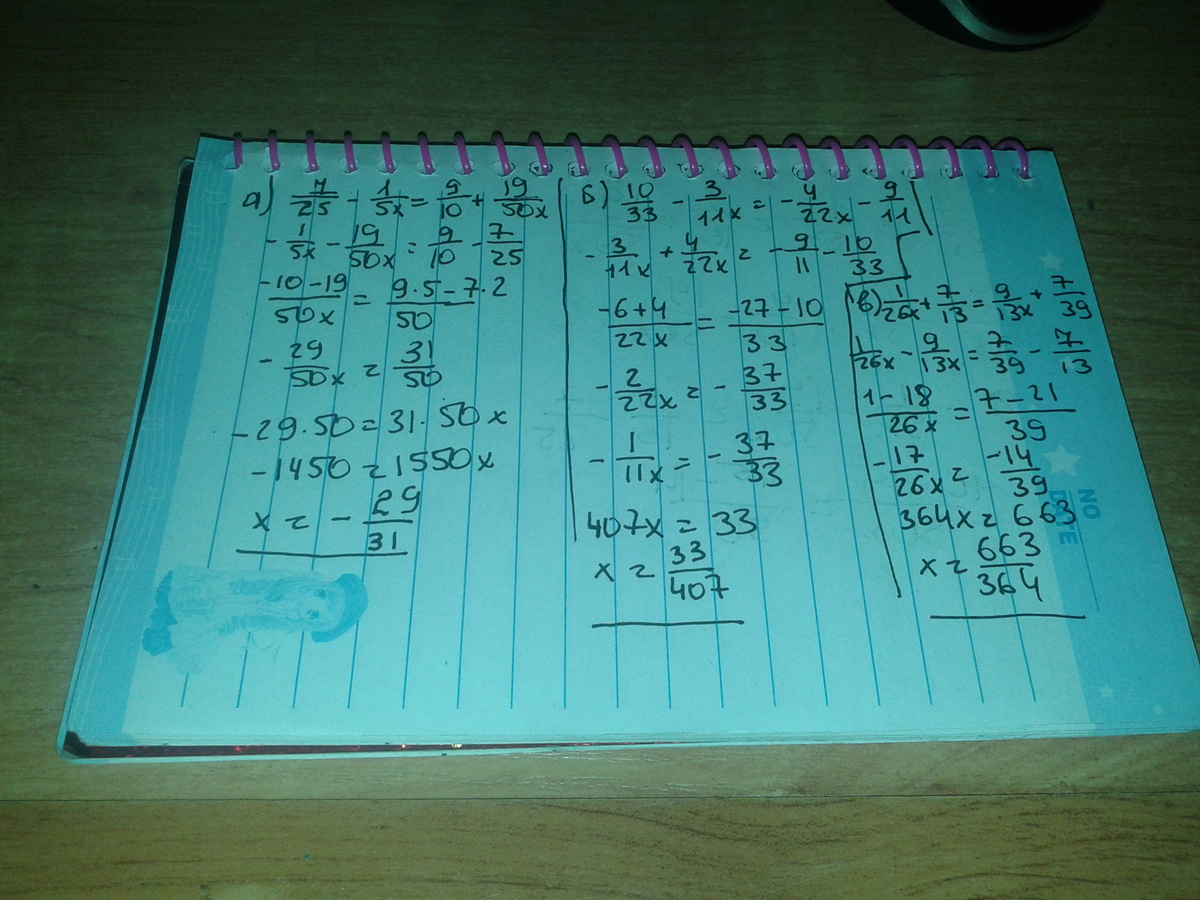 а) 7/25 - 1/5x = 9/10 + 19/50x
- 1/5x - 19/50x = 9/10 - 7/25
(-10-19)/50x = (9·5-7·2)/50
- 29/50x = 31/50
-29·50 = 31·50x
-1450 = 1550x
x = - 29/31
б) 10/33 - 3/11x = - 4/22x - 9/11
- 3/11x + 4/22x = - 9/11 - 10/33
(-6+4)/22x = (-27-10)/33
- 2/22x = - 37/33
- 1/11x = - 37/33
407x = 33
x = 33/407
в) 1/26x + 7/13 = 9/13x + 7/39
1/26x - 9/13x = 7/39 - 7/13
(1-18)/26x = (7-21)/39
-17/26x = -14/39
364x = 663
x = 663/364
NO
DATE